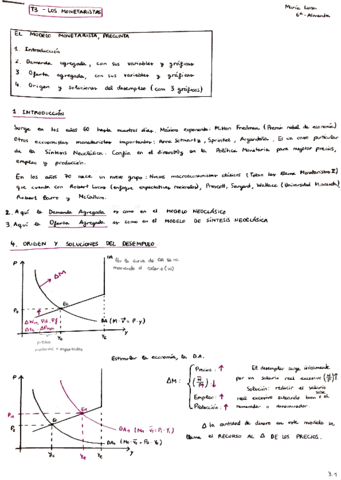 T3 - LOS MONETARISTAS
María Luna
6º Almendra
EL MODELO MONETARISTA, PREGUNTA
1. Introducción
2. Demanda agregada, con sus variables y gráficos
3. Oferta agregada, con sus variables y gráficos
4. Origen y soluciones del desempleo (con 3 gráficos)
1 INTRODUCCIÓN
Surge en los años 60 hasta nuestros días. Máximo exponente: Milton Friedman (Premio nobel de economía)
Otros economistas monetaristas importantes: Anna Schwartz, Sprinkel, Es un caso particular
de la Síntesis Neoclásica. Confía en el dinero y en la Política Monetaria para mejorar precios,
empleo y producción.
En los años 70 nace un nuevo grupo: Nueva macroeconomía clásica (Tobin los llama Monetaristas II)
que cuentan con Robert Lucas (enfoque expectativas racionales), Prescott, Sargent, Wallace (Universidad Minnesota)
Robert Barro y McCallum.
2. Aquí la Demanda Agregada es como en el MODELO NEOCLÁSICO
3. Aquí la Oferta Agregada es como en el MODELO DE SÍNTESIS NEOCLÁSICA
4. ORIGEN Y SOLUCIONES DEL DESEMPLEO
P
ΔM
OA
P₀
E₀
DA (M · V = P · y)
Y₀
Y
Estimular la economía, la D.A.
P
P₀
E₀
Y₀
Y
ΔM:
Precios: ↑
↓
Empleo: ↑
Producción: ↑
El desempleo surge inicialmente
por un salario real excesivo
Solución: reducir el salario
real excesivo subiendo
numerador o denominador.
A la cantidad de dinero en este modelo se
llama el RECURSO AL Δ DE LOS PRECIOS.
3.1